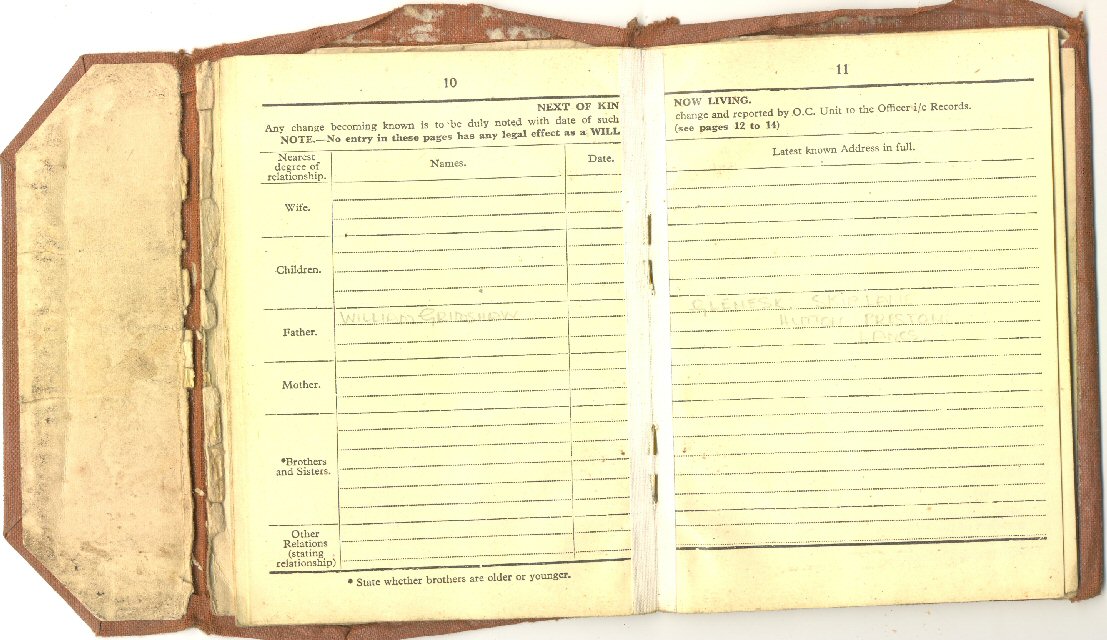 10
NEXT OF KIN
Any change becoming known is to be duly noted with date of such
NOTE.—No entry in these pages has any legal effect as a WILL
Nearest degree of relationship.
Names.
Date.
Wife.
Children.
Father.
WILLIAM GRIMSHAW
Mother.
*Brothers and Sisters.
Other Relations (stating relationship)
* State whether brothers are older or younger.
11
NOW LIVING.
change and reported by O.C. Unit to the Officer i/c Records.
(see pages 12 to 14)
Latest known Address in full.
GLENESK
PRESTON
LANCS